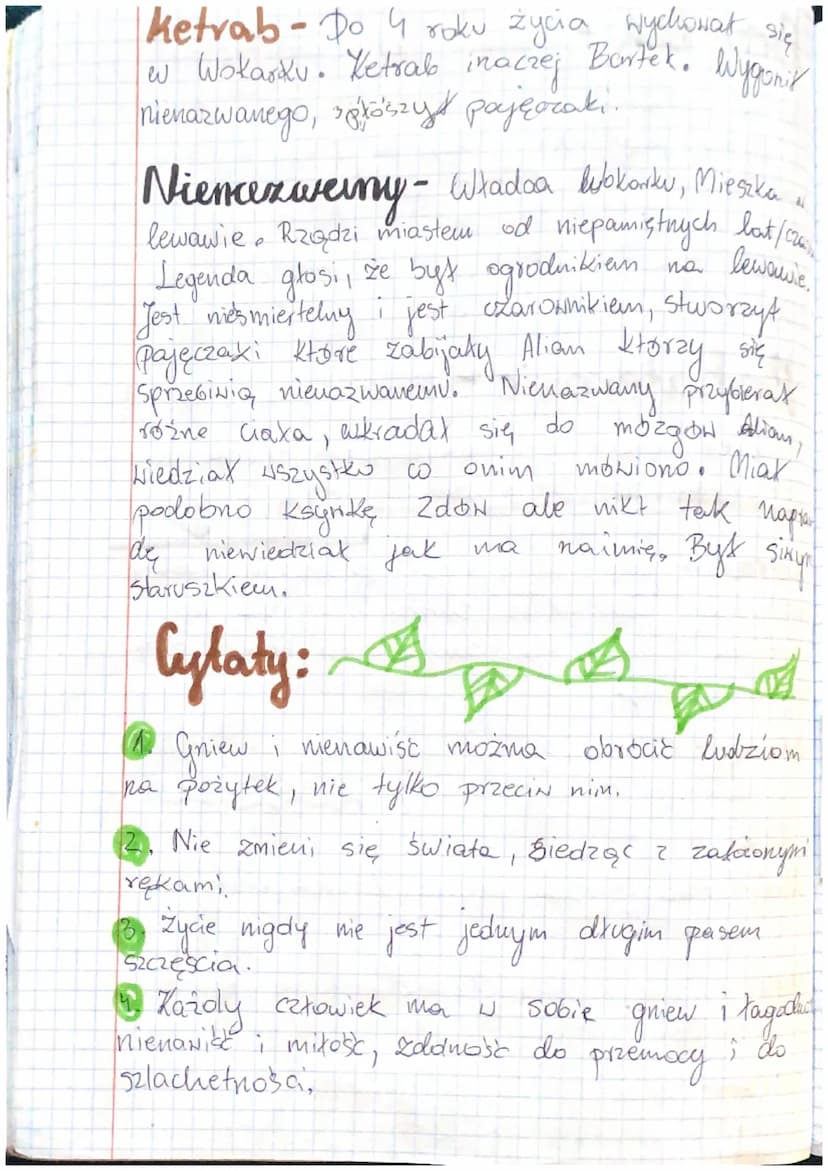 Ketrab - Do 4 roku życia wychował się
w Wokarku. Ketrab inaczej Bartek. Wygonił
nienazwanego, pajęczaki.
Nienazwany - Władca Wokarku, Mieszka w
lewawie. Rządzi miastem od niepamiętnych lat/
Legenda głosi, że był ogrodnikiem na lewawie.
Jest nieśmiertelny i jest czarownikiem, stworzył
pajęczaki które zabijały Alian którzy się
sprzeciwią nienazwanemu. Nienazwany przybierał
różne ciała, wkradał się do mózgów Alian,
wiedział wszystko co onim mówiono. Miał
podobno ksywkę Zdów ale nikt tak napra
dę niewiedział jak ma naimię. Był siwy
staruszkiem.
Cytaty:
1. Gniew i nienawiść można obrócić ludziom
na pożytek, nie tylko przeciw nim.
2. Nie zmieni się świata, siedząc z założonymi
rękami.
3. Życie nigdy nie jest jednym długim pasem
szczęścia.
4. Każdy człowiek ma w sobie gniew i
nienawiść i miłość, zdolność do przemocy i do
szlachetności,